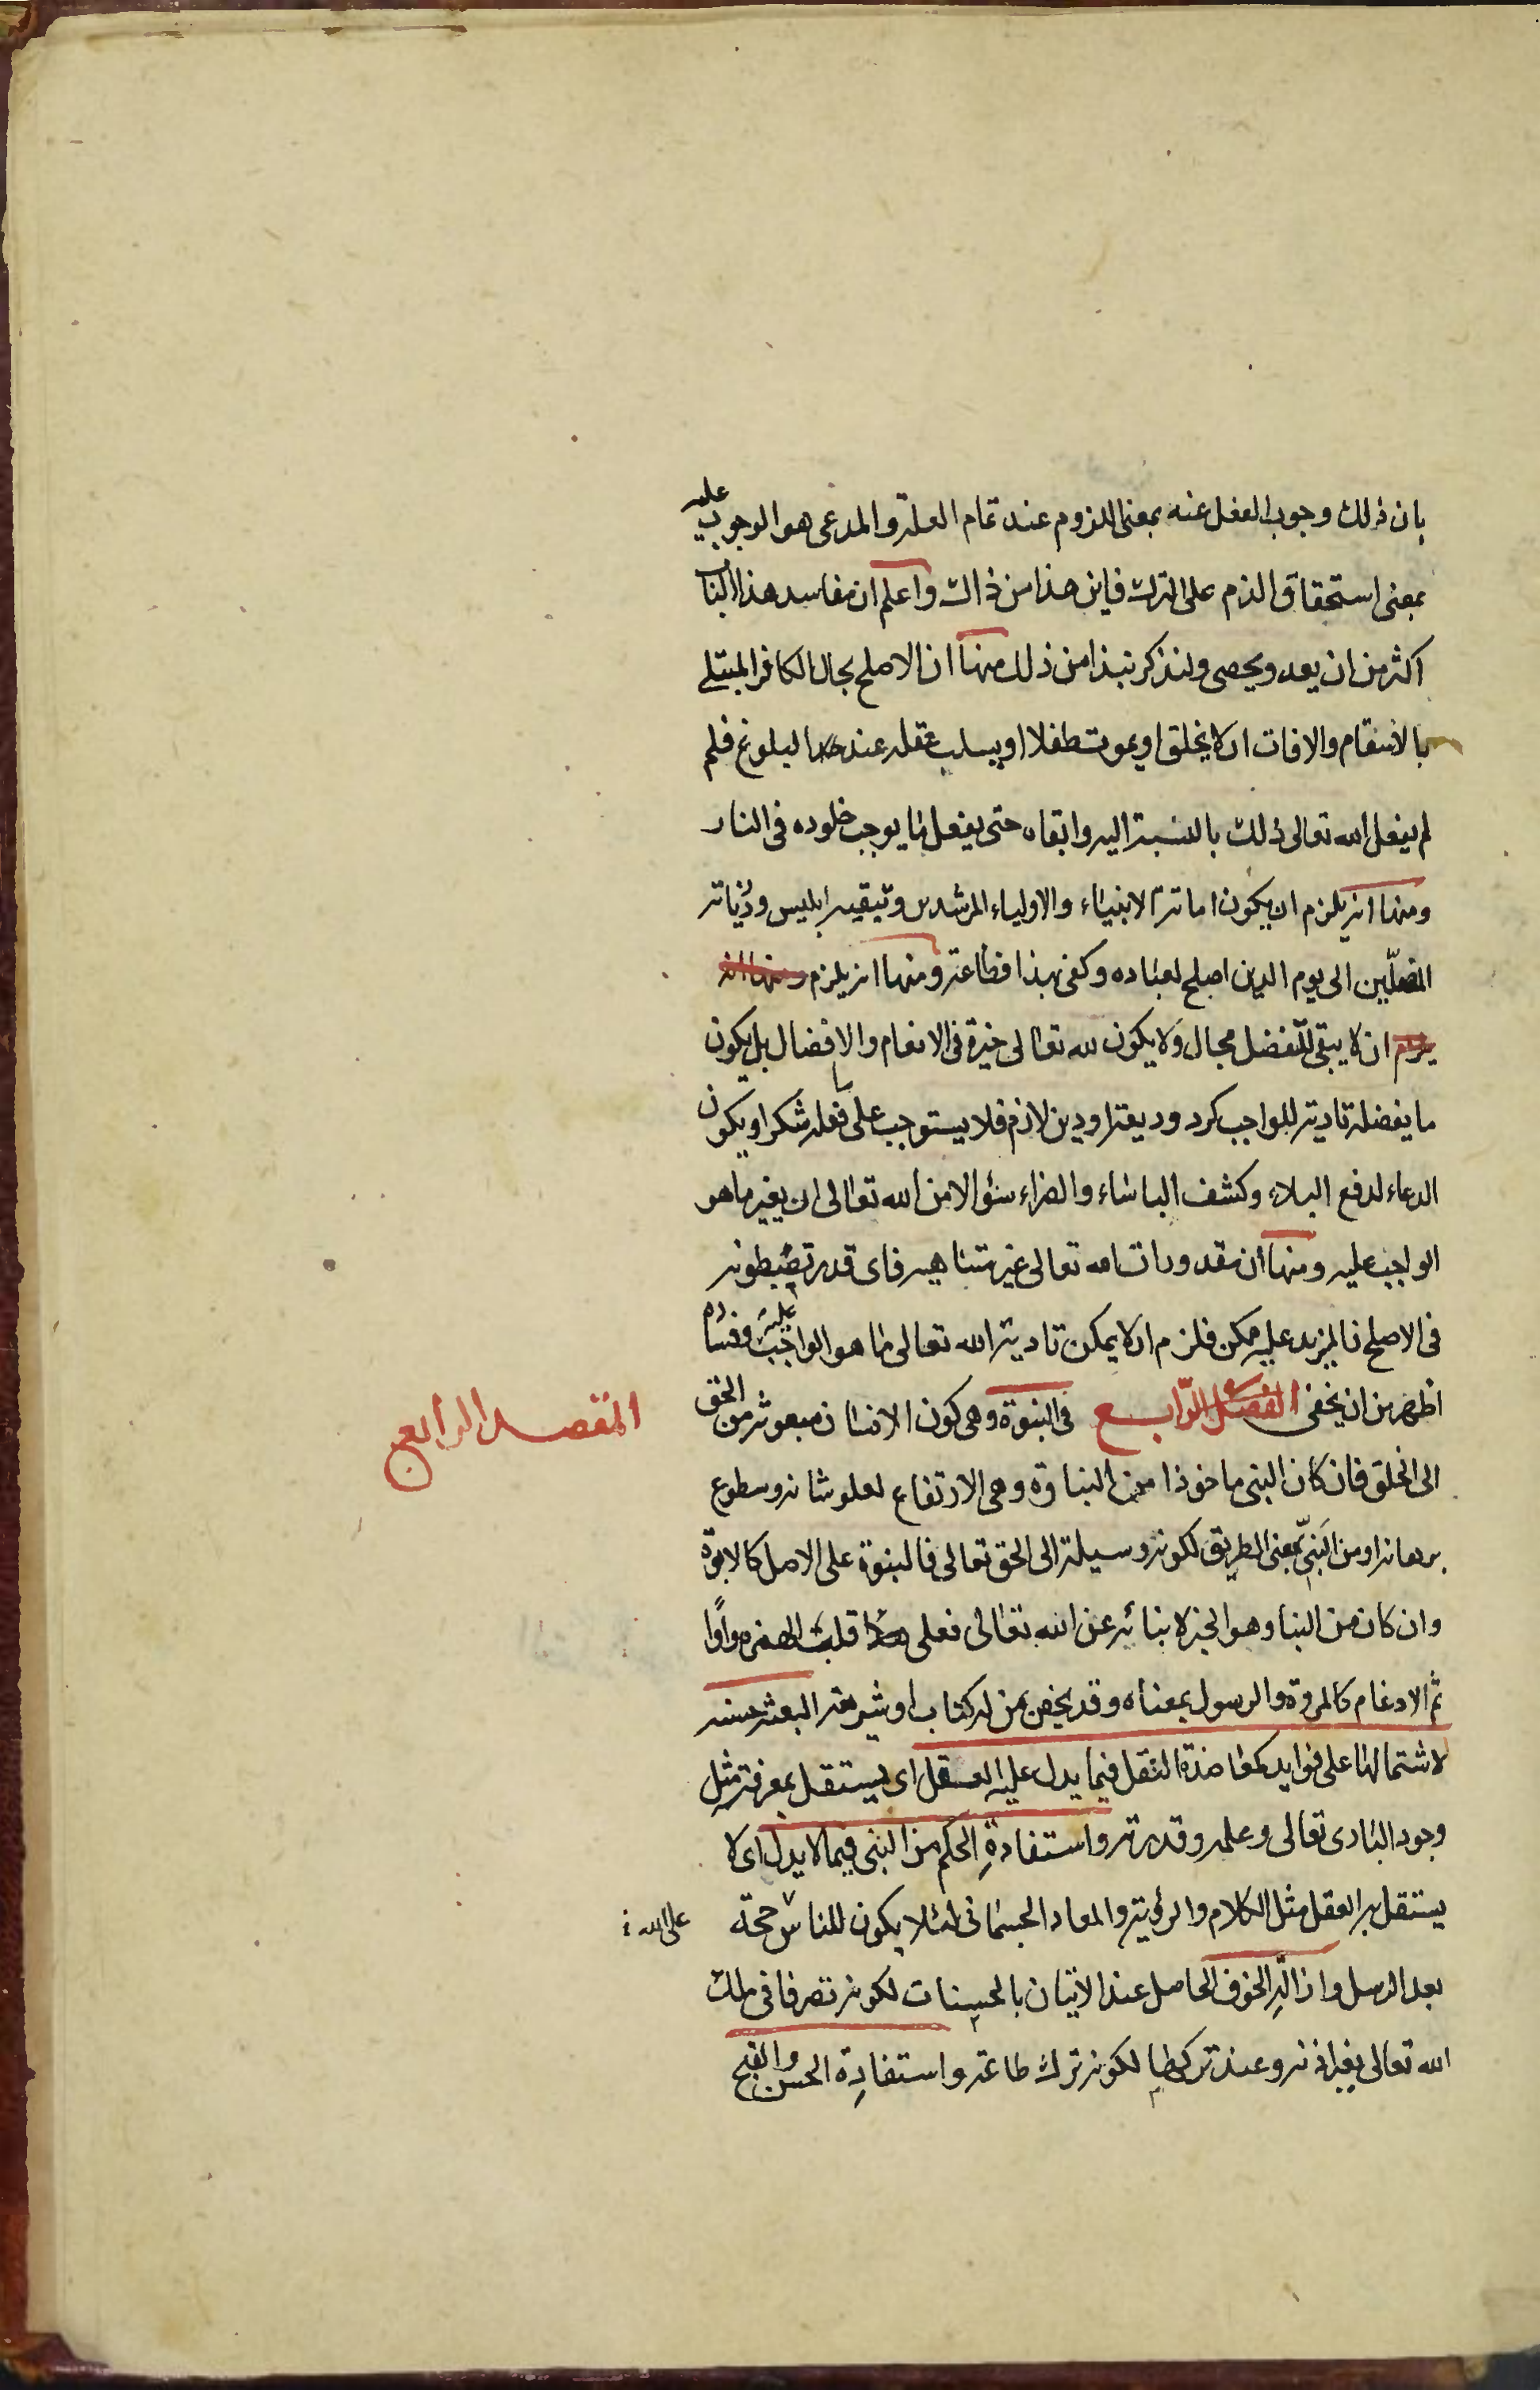 بان ذلك وجوب الفعل عنه بمعنى اللزوم عند تمام العلة والمدعى هو الوجوب عليه
بمعنى استحقاق الذم على الترك فاين هذا من ذاك واعلم ان مفاسد هذا الباب
اكثر من ان يعد ويحصى ولنذكر نبذا من ذلك منها ان الاصلح بحال الكافر المبتلى
بالاسقام والافات ان لا يخلق او يموت طفلا او يسلب عقله عند البلوغ فلم
لم يفعل الله تعالى ذلك بالنسبة اليه وابقاه حتى يفعل ما يوجب خلوده فى النار
ومنها انه يلزم ان يكون اماتة الانبياء والاولياء المرشدين وتبقية ابليس وذرياته
المضلّين الى يوم الدين اصلح لعباده وكفى بهذا فظاعة ومنها انه يلزم ومنها انه
يلزم ان لا يبقى للتفضل مجال ولا يكون لله تعالى خيرة فى الانعام والافضال بل يكون
ما يفضله تادية للواجب كرد وديعة او دين لازم فلا يستوجب على فعله شكرا ويكون
الدعاء لدفع البلاء وكشف الباساء والضراء سؤالا من الله تعالى ان يغير ما هو
الواجب عليه ومنها ان مقدورات الله تعالى غير متناهية فاى قدر تضبطونه
فى الاصلح فالمزيد عليه ممكن فلزم ان لا يمكن تادية الله تعالى ما هو الواجب عليه وفساده
اظهر من ان يخفى الفصل الرّابع فى النبوة وهى كون الانسان مبعوثه من الحق
المقصد الرابع
الى الخلق فان كان النبى ماخوذا من النباوة وهى الارتفاع لعلو شانه وسطوع
برهانه او من النبىّ بمعنى الطريق لكونه وسيلة الى الحق تعالى فالنبوة على الاصل كالابوة
وان كان من النبا وهو الخبر لانبائه عن الله تعالى فعلى قلب الهمزة واوًا
ثم الادغام كالمروة والرسول بمعناه وقد يخص بمن له كتاب او شريعة البعثة حسنة
لاشتمالها على فوايد كمعاضدة النقل فيما يدل عليه العقل اى يستقل بمعرفته مثل
وجود البارى تعالى وعلمه وقدرته واستفادةِ الحكم من النبى فيما لا يدل اى لا
يستقل به العقل مثل الكلام والرؤية والمعاد الجسمانى لئلا يكون للناس حجة على الله
بعد الرسل وازالةِ الخوف الحاصل عند الاتيان بالحسنات لكونه تصرفا فى ملك
الله تعالى بغير اذنه وعند تركها لكونه ترك طاعة واستفادةِ الحسن والقبح